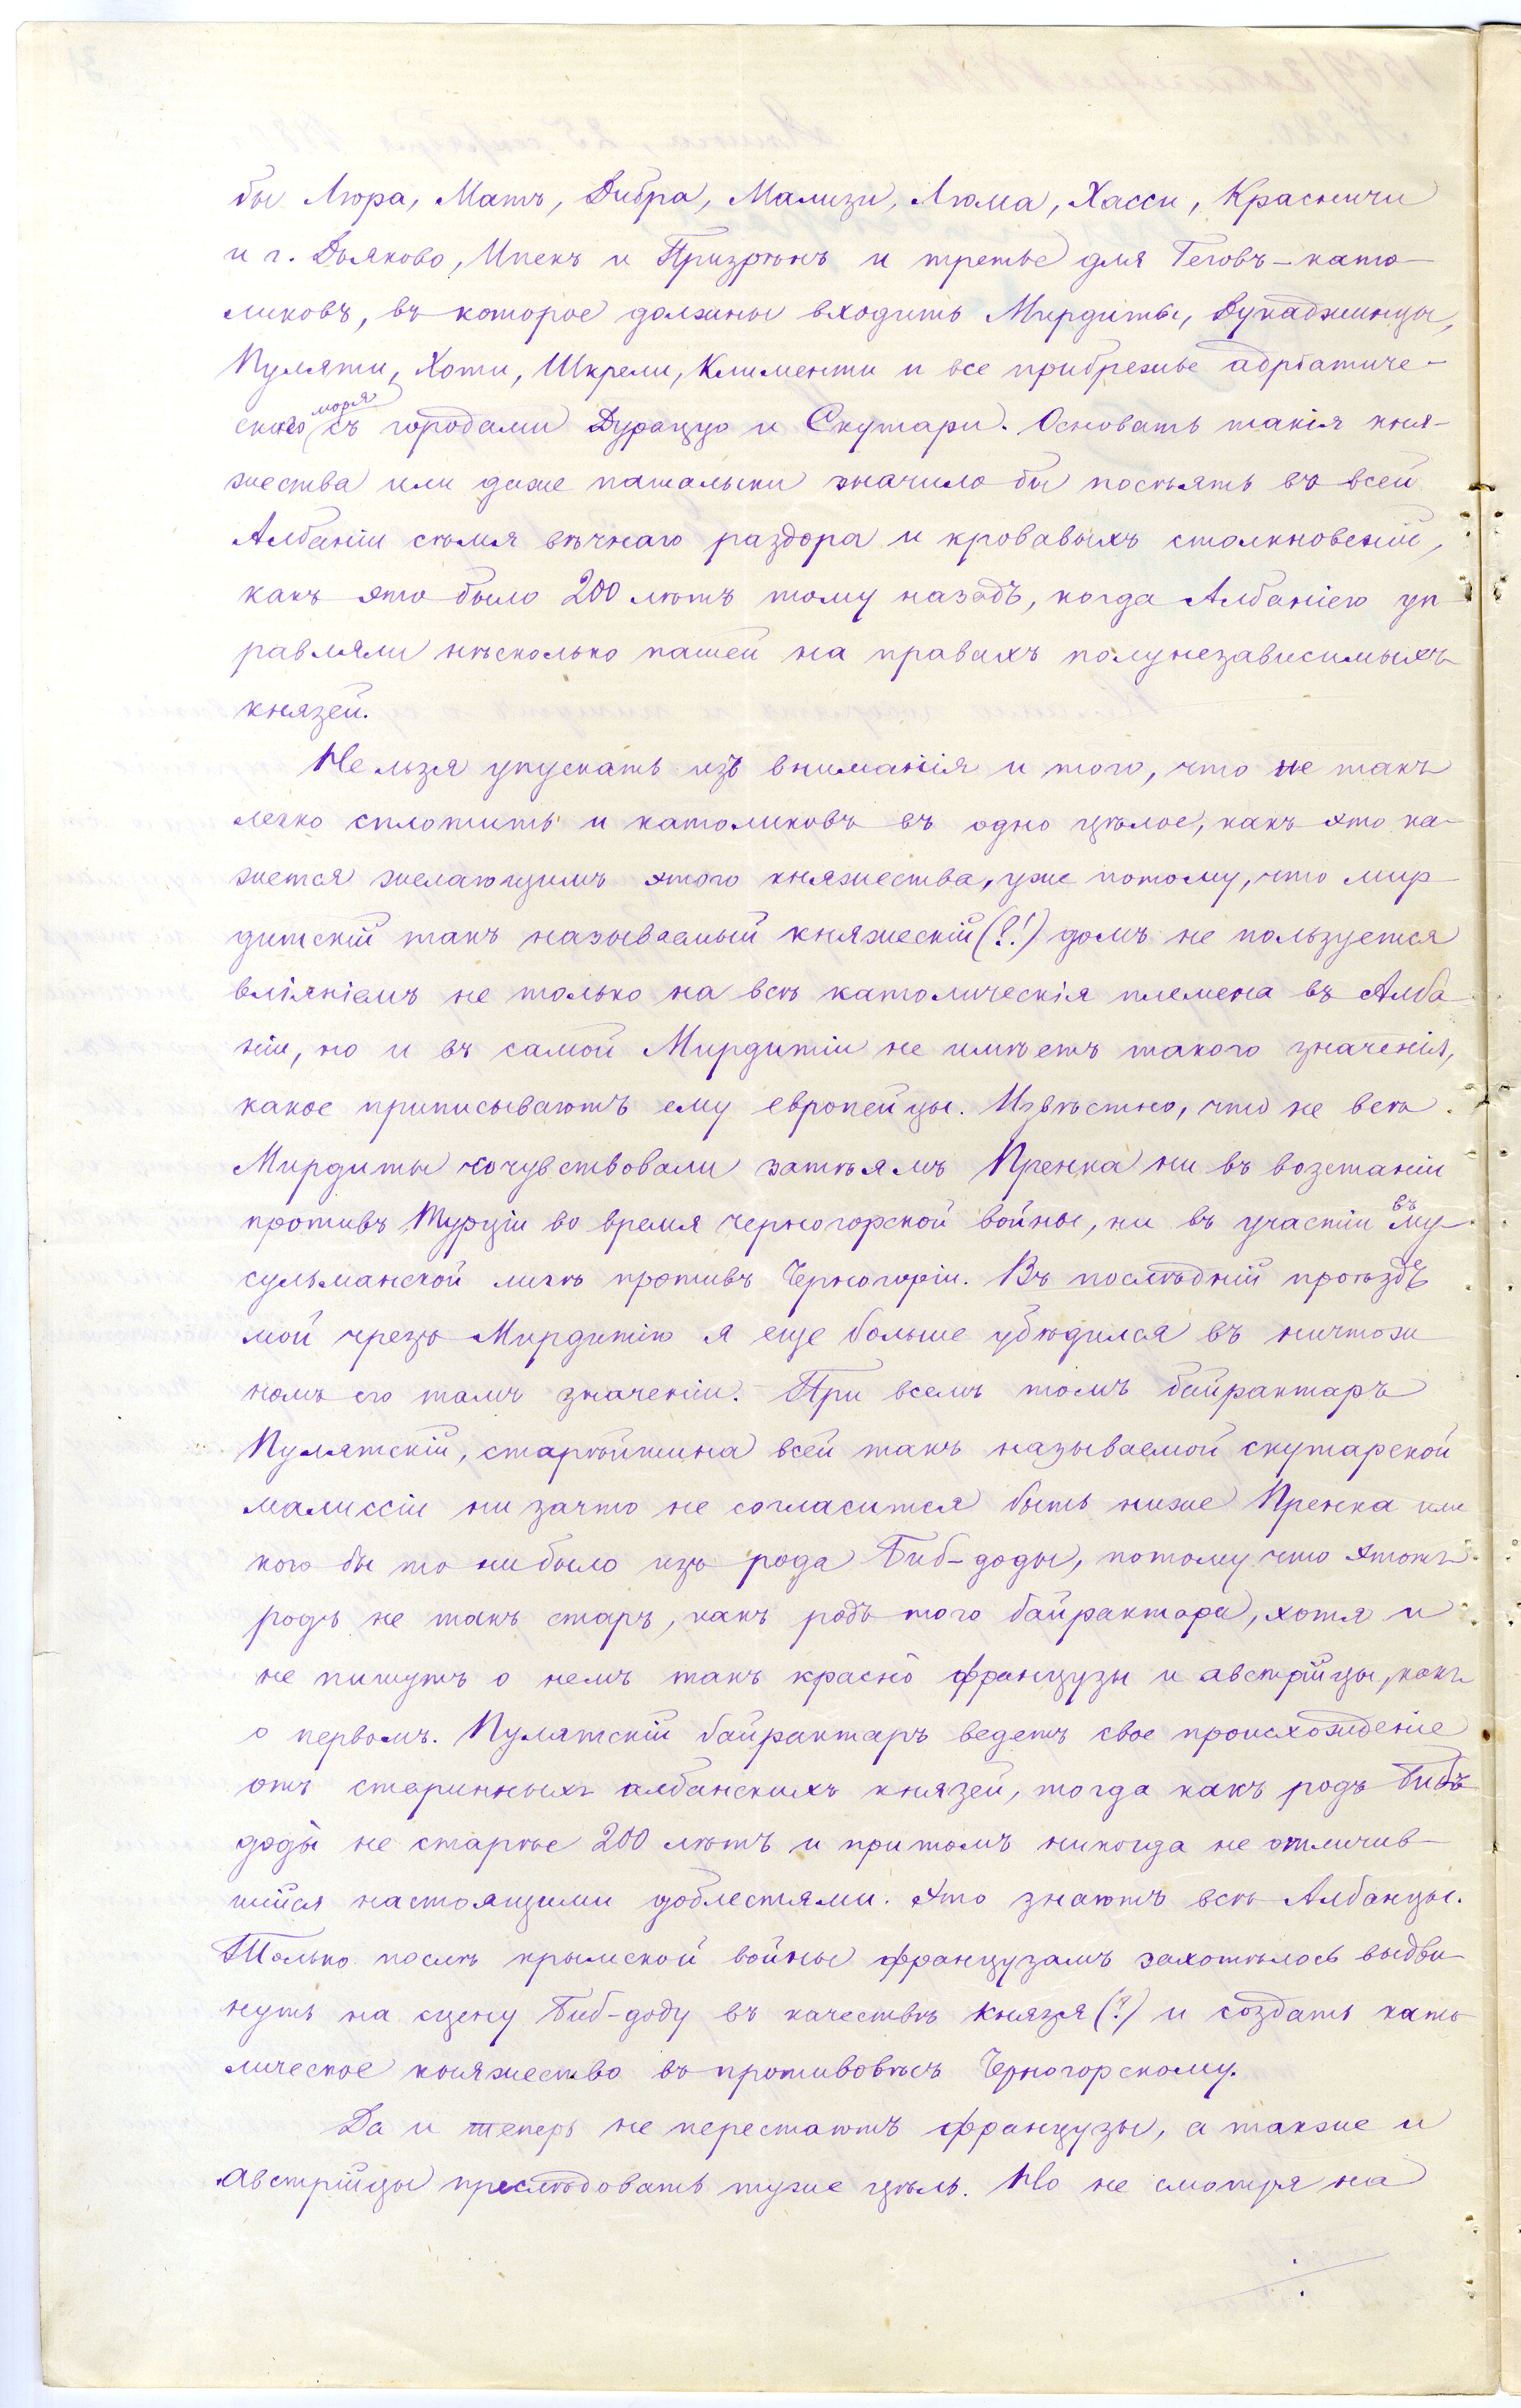 бы Люра, Матъ, Дибра, Мализи, Люма, Хасси, Красничи
и г. Дьяково, Ипекъ и Призрѣнъ и третье для Геговъ-като-
ликовъ, въ которое должны входить Мирдиты, Дукаджинцы,
Пуляти, Хоти, Шкрели, Клименти и все прибрежье адріатиче-
скаго моря съ городами Дураццо и Скутари. Основать такія кня-
жества или даже пашалыки значило бы посѣять во всей
Албаніи сѣмя вѣчнаго раздора и кровавыхъ столкновеній,
какъ это было 200 лѣтъ тому назадъ, когда Албаніею уп-
равляли нѣсколько пашей на правахъ полунезависимыхъ
князей.
Нельзя упускать изъ вниманія и того, что не такъ
легко сплотить и католиковъ въ одно цѣлое, какъ это ка-
жется желающимъ этого княжества, уже потому, что мир-
дитскій такъ называемый княжескій (?!) домъ не пользуется
вліяніемъ не только на всѣ католическія племена въ Алба-
ніи, но и въ самой Мирдитіи не имѣетъ такого значенія,
какое приписываютъ ему европейцы. Извѣстно, что не всѣ
Мирдиты сочувствовали затѣямъ Пренка ни въ возстаніи
противъ Турціи во время черногорской войны, ни въ участіи въ му-
сульманской лигѣ противъ Черногоріи. Въ послѣдній проѣздъ
мой чрезъ Мирдитію я еще больше убѣдился въ ничтож-
номъ его тамъ значеніи. При всемъ томъ байрактаръ
Пулятскій, старѣйшина всей такъ называемой скутарской
малиссіи ни зачто не согласится быть ниже Пренка или
кого бы то ни было изъ рода Биб-доды, потому что этотъ
родъ не такъ старъ, какъ родъ того байрактара, хотя и
не пишутъ о немъ такъ красно французы и австрійцы, какъ
о первомъ. Пулятскій байрактаръ ведетъ свое происхожденіе
отъ старинныхъ албанскихъ князей, тогда какъ родъ Бибъ
доды не старѣе 200 лѣтъ и притомъ никогда не отличив-
шійся настоящими доблестями. Это знаютъ всѣ Албанцы.
Только послѣ крымской войны французамъ захотѣлось выдви-
нуть на сцену Биб-доду въ качествѣ князя (?) и создать като-
лическое княжество въ противовѣсъ Черногорскому.
Да и теперь не перестаютъ французы, а также и
Австрійцы преслѣдовать туже цѣль. Но не смотря на